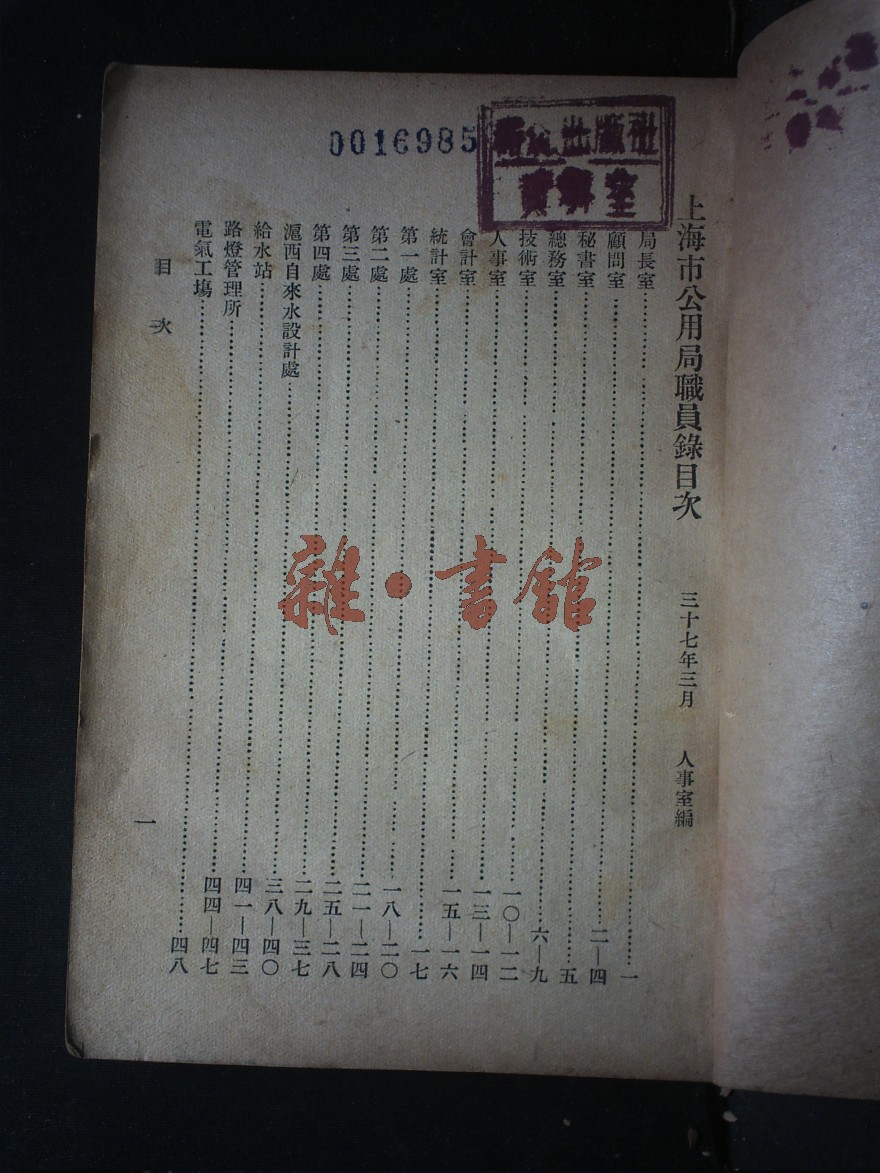 0016985
出版社
上海市公用局職員錄目次 三十七年三月 人事室編
局長室……一
顧問室……二—四
秘書室……五
總務室……六—九
技術室……一〇—一二
人事室……一三—一四
會計室……一五—一六
統計室……一七
第一處……一八—二〇
第二處……二一—二四
第三處……二五—二八
第四處……二九—三七
滬西自來水設計處……三八—四〇
給水站……四一—四三
路燈管理所……四四—四七
電氣工塲……四八
目次
一
雜·書館